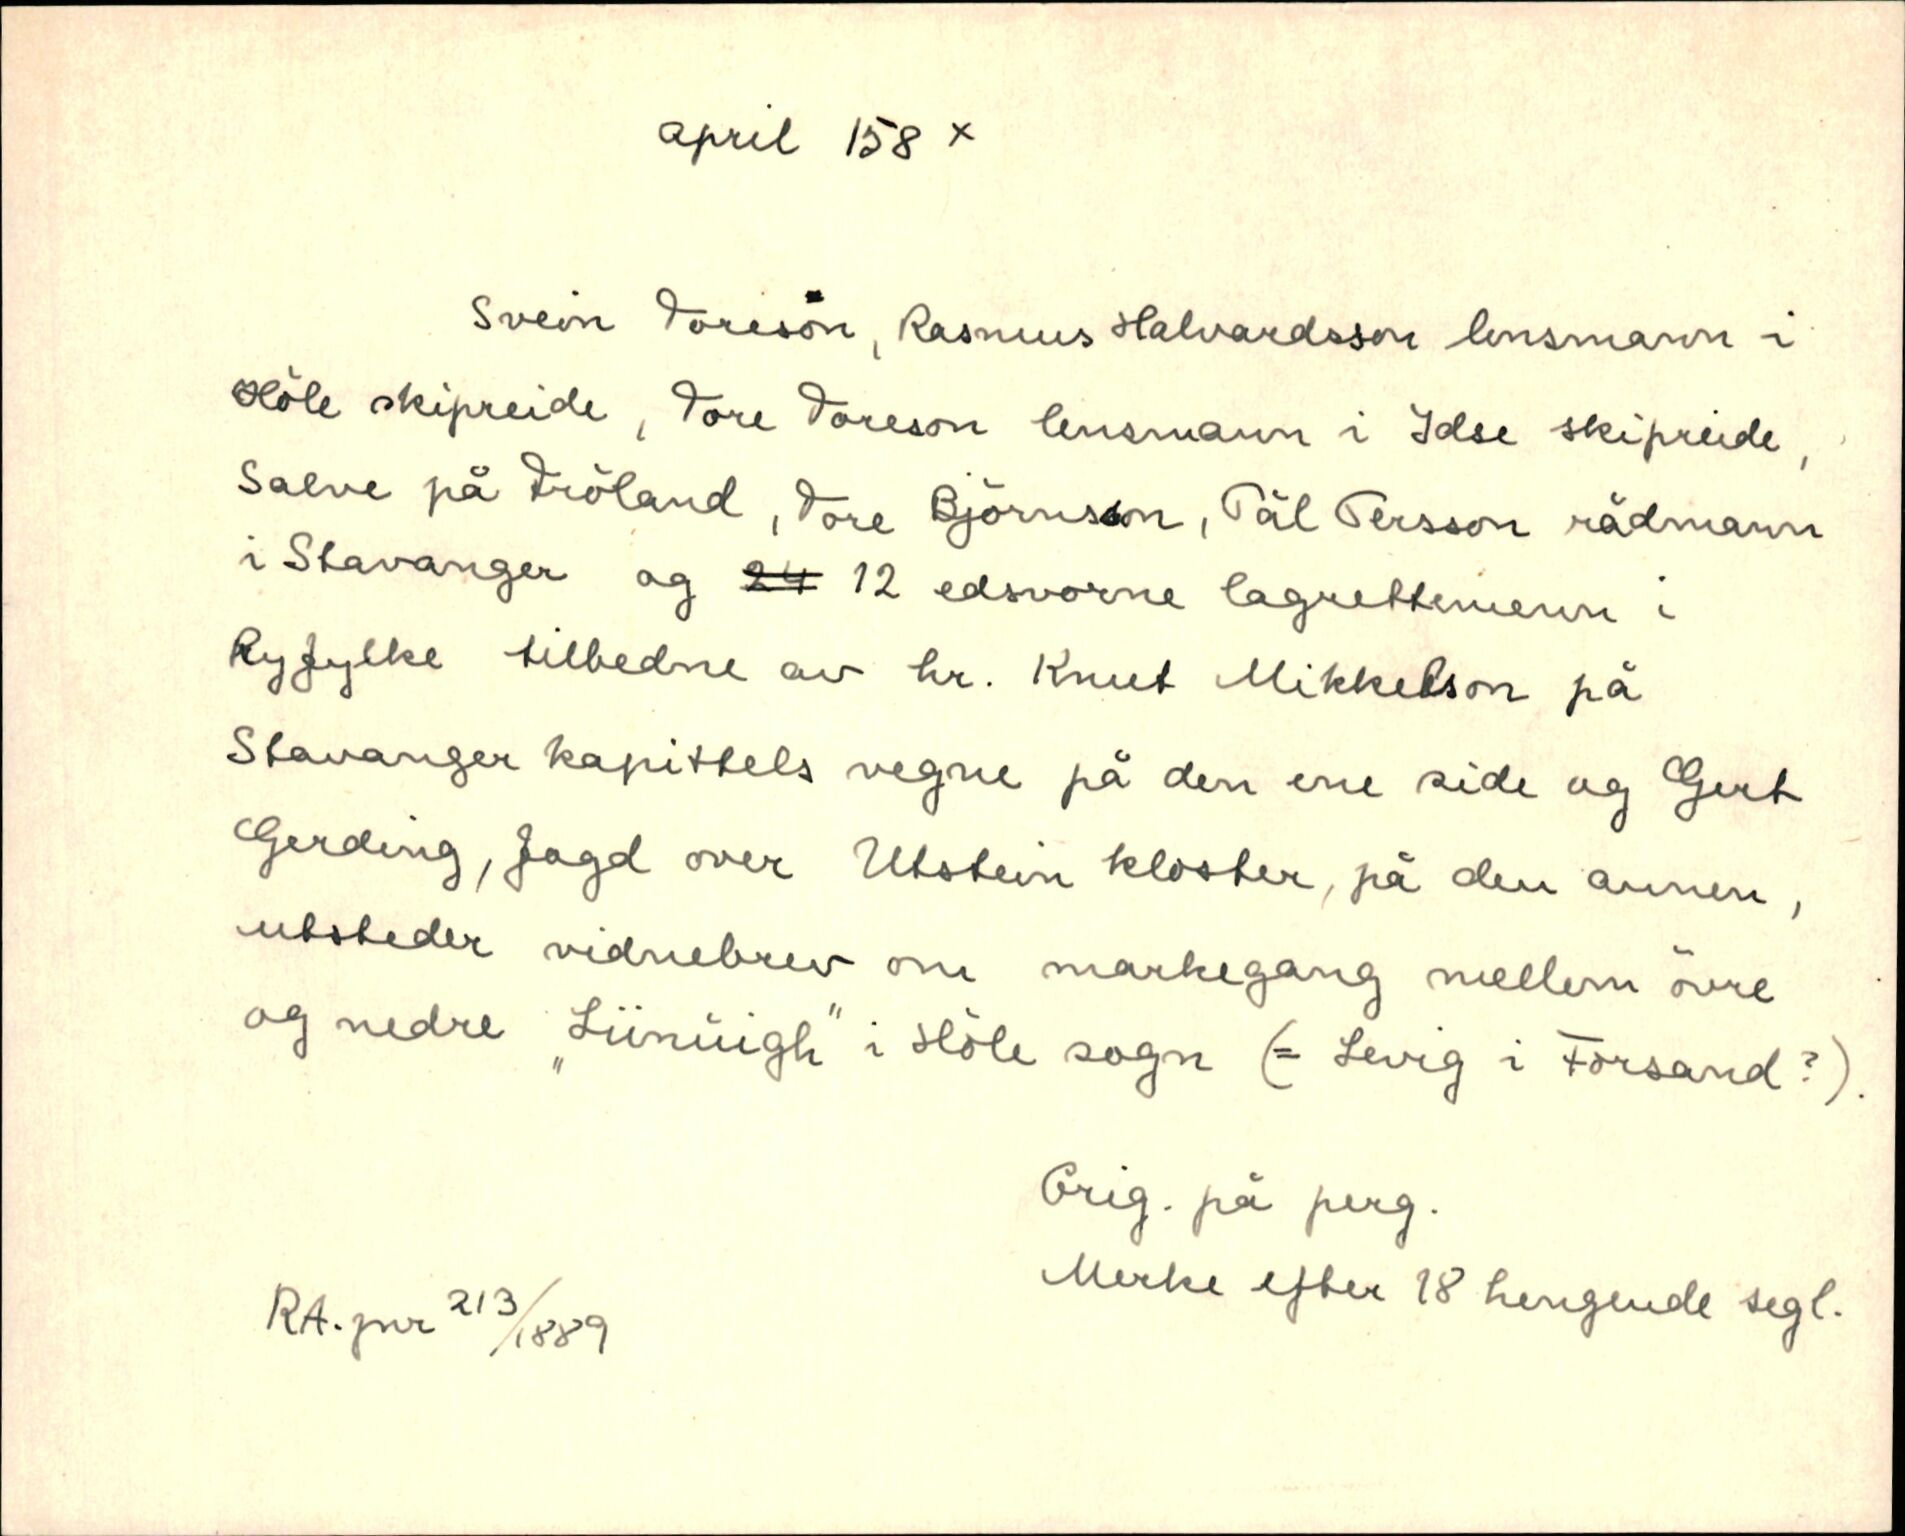 april 158 x
Svein Toreson, Rasmus Halvardsson lensmann i
Höle skipreide, Tore Toreson lensmann i Idse skipreide,
Salve på Fröland, Tore Björnson, Pål Persson rådmann
i Stavanger og 24 12 edsvorne lagrettemenn i
Ryfylke tilbedne av hr. Knut Mikkelson på
Stavanger kapittels vegne på den ene side og Gert
Gerding, fogd over Utstein kloster, på den annen,
utsteder vidnebrev om markegang mellem övre
og nedre „Liinüigh" i Höle sogn (= Levig i Forsand?).
Orig. på perg.
Merke efter 18 hengende segl.
RA. pnr 213/1889